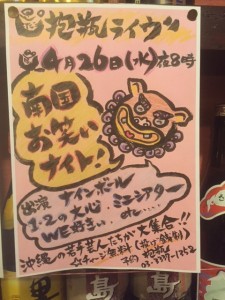 抱瓶ライヴ
4月26日(水)夜8時
南国
お笑い
ナイト!
出演 ナインボール
1・2の大心・ミニシアター
WE好きぃ、 etc....
沖縄の若手芸人たちが大集合!!
チャージ無料(投げ銭制)
予約 抱瓶
島
島